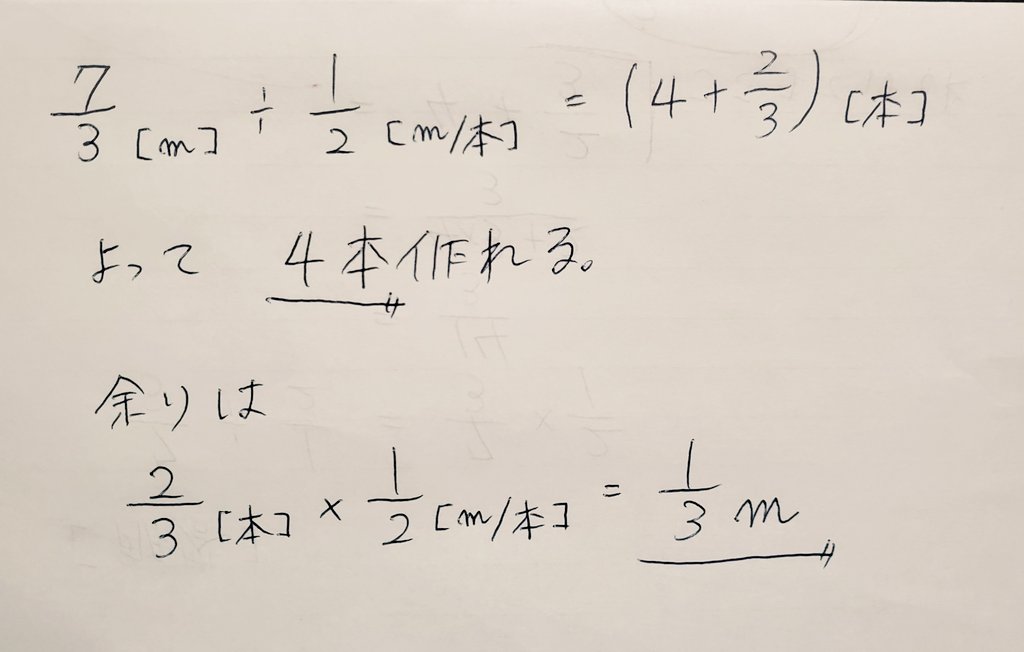 7/3 [m] ÷ 1/2 [m/本] = (4 + 2/3) [本]
よって 4本作れる。
余りは
2/3 [本] × 1/2 [m/本] = 1/3 m